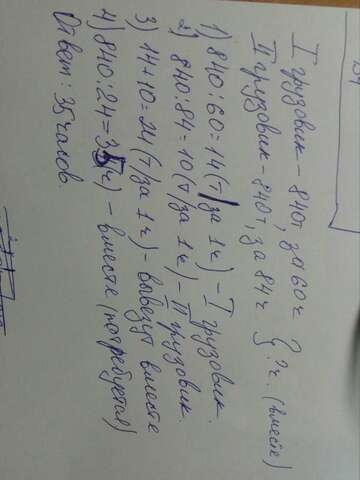 I грузовик - 840т, за 60 ч
II грузовик - 840т, за 84 ч } ? ч. (вместе)
1) 840 : 60 = 14 (т/за 1 ч) - I грузовик.
2) 840 : 84 = 10 (т/за 1 ч) - II грузовик.
3) 14 + 10 = 24 (т/за 1 ч) - вывезут вместе
4) 840 : 24 = 35 (ч) - вместе (потребуется)
Ответ: 35 часов.